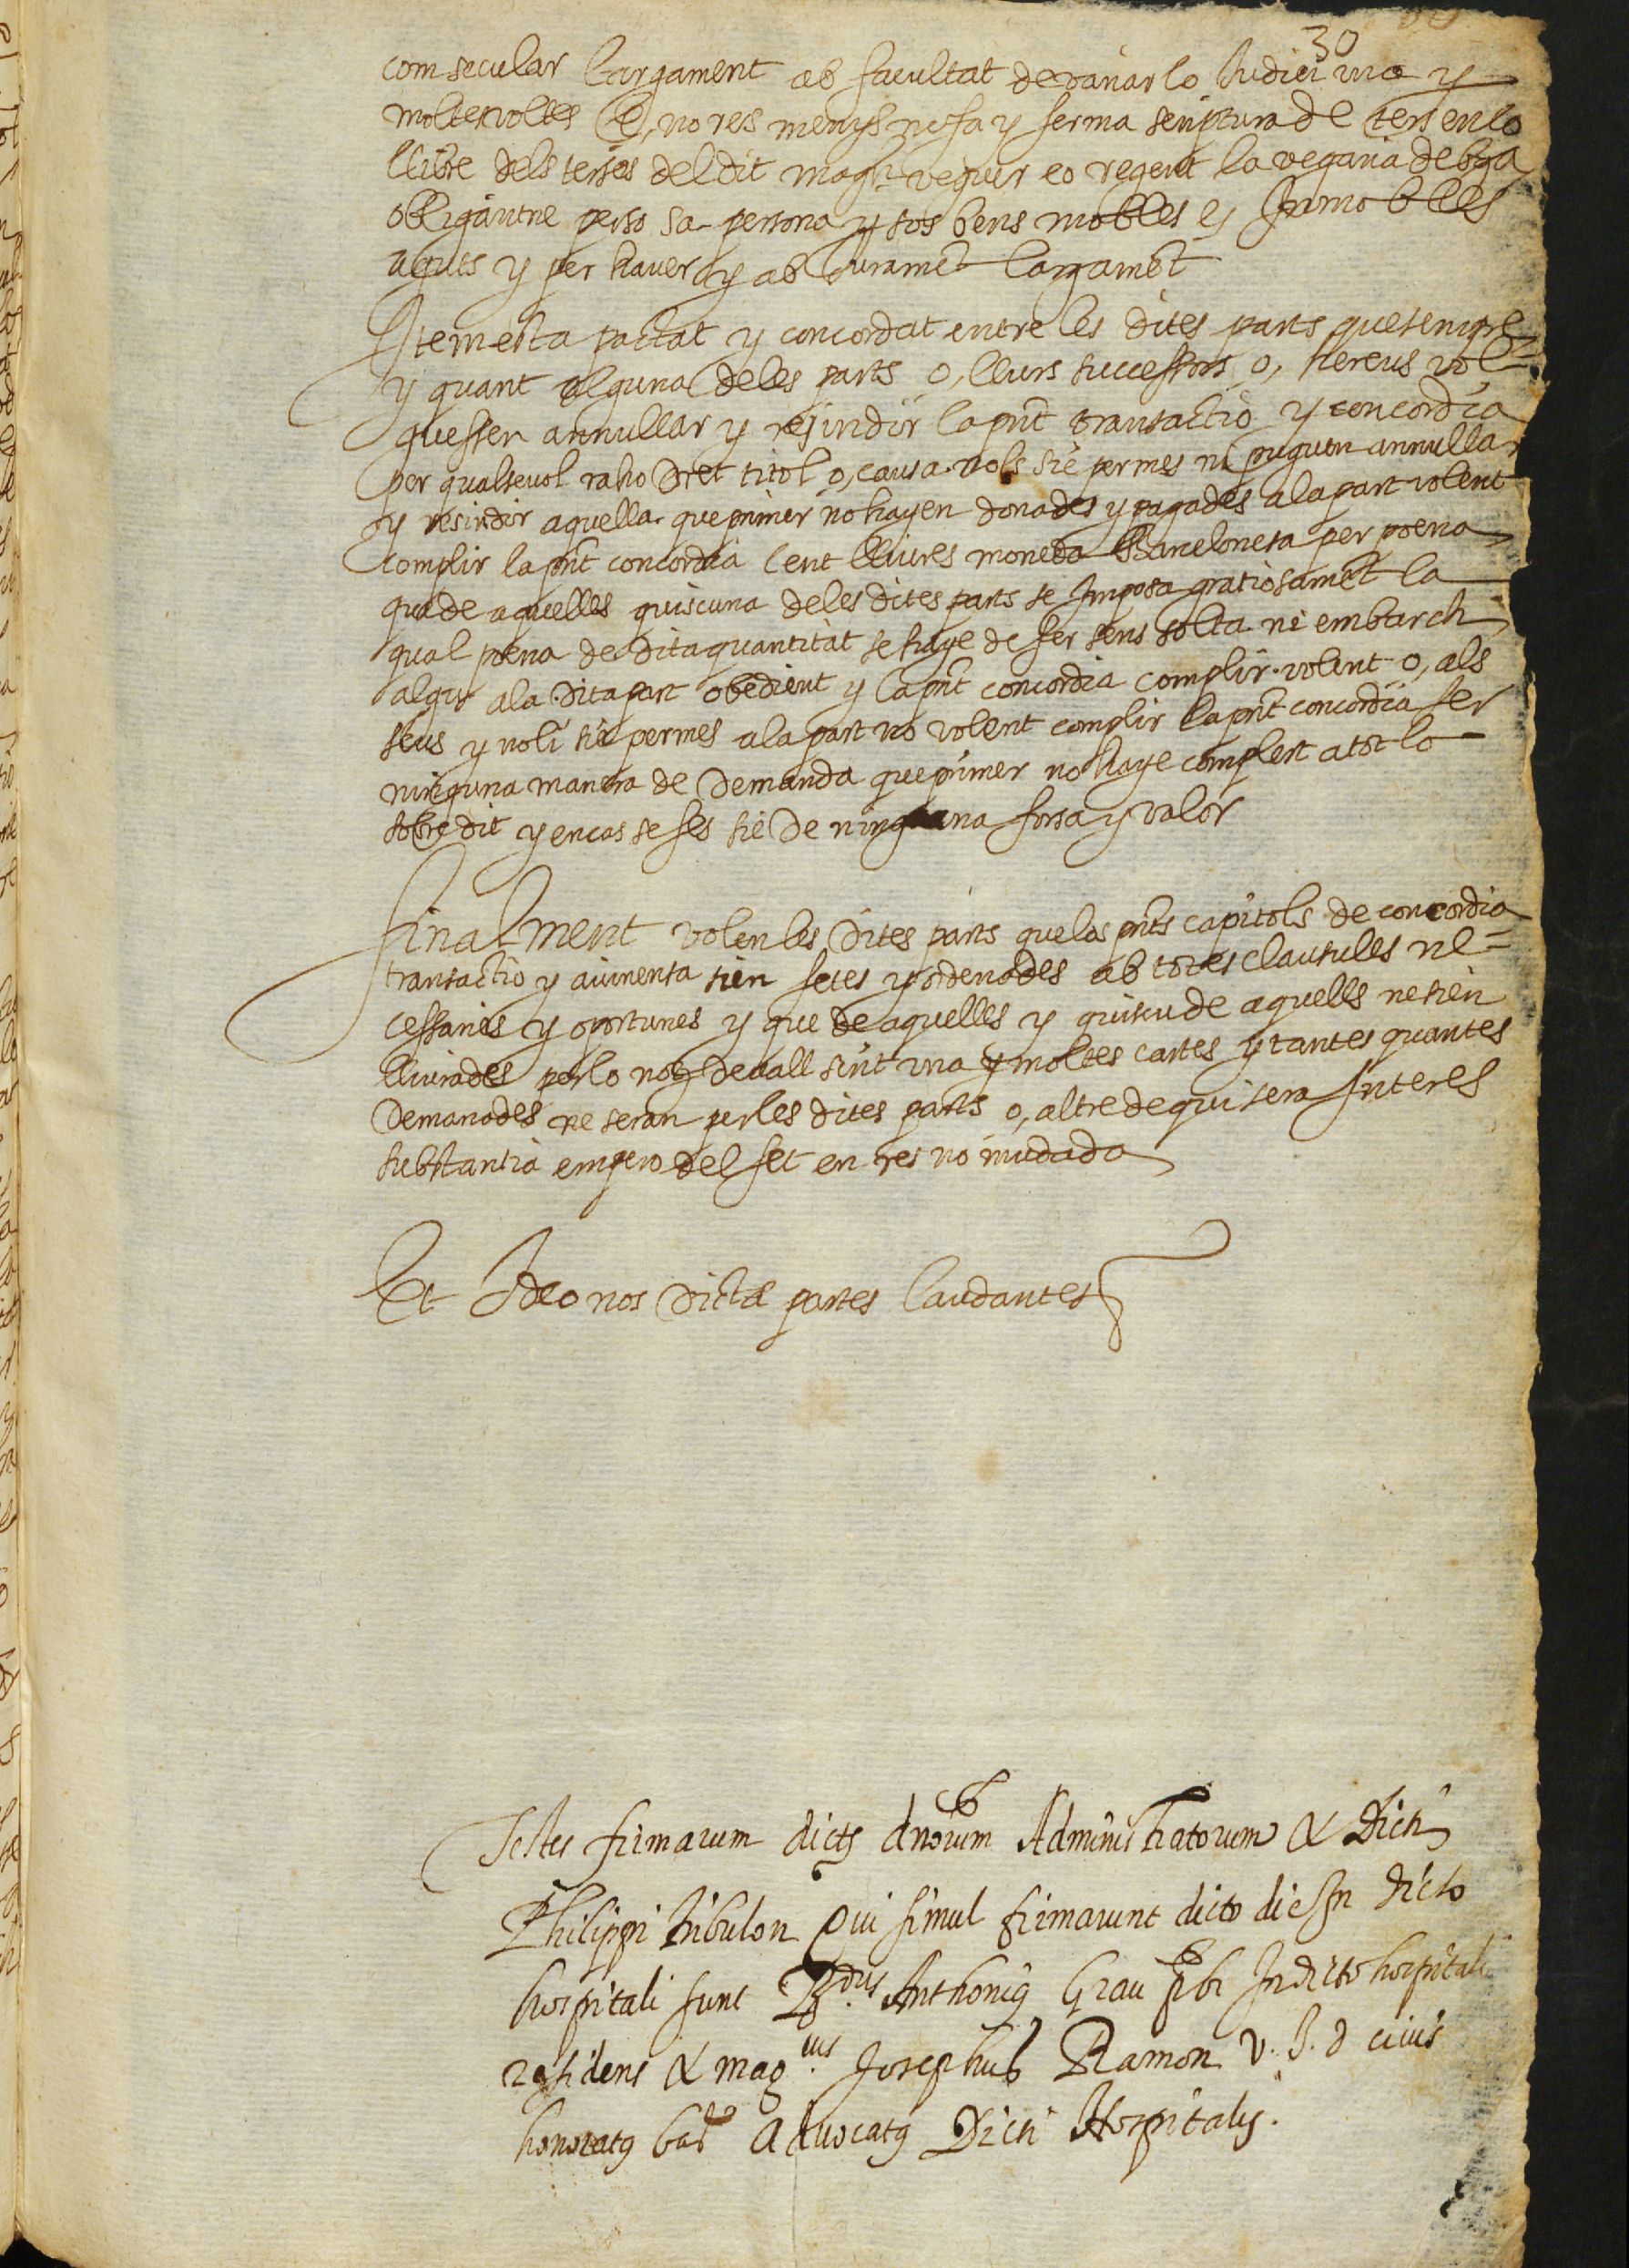 30
com secular largament ab facultat de variar lo Judici una y
moltes voltes E, no res menys ne fa y ferma scriptura de ters en lo
llibre dels tersos del dit magch veguer eo regent la vegaria de bça
obligantne perso sa persona y sos bens mobles e, Inmobles
aguts y per haver y ab Juramēt largamēt
Item esta pactat y concordat entre les dites parts que sempre
y quant alguna deles parts o, llurs successors o, hereus vol=
guessen annullar y resindir la pnt transactio y concordia
per qualsevol raho Dret titol o, causa nols sie permes ni puguen annullar
y resindir aquella que primer no hayen donades y pagades ala part volent
complir la pnt concordia Cent lliures moneda Barcelonesa per poena
qua de aquelles quiscuna deles dites parts se Imposa gratiosamēt la
qual poena de dita quantitat se haye de fer sens solta ni embarch
algu ala dita part obedient y la pnt concordia complir volent o, als
seus y noli sie permes ala part no volent complir la pnt concordia fer
ninguna manera de Demanda que primer no haye complert a tot lo
sobredit y en cas se fes sie De ninguna forsa y valor
Finalment volen les Dites parts que los pnts capitols de concordia
transactio y avinensa sien fetes y ordenades ab totes clausules ne=
cessaries y oportunes y que de aquelles y quiscu de aquells ne sien
lliurades per lo noty devall scrit una y moltes cartes y tantes quantes
Demanades ne seran per les dites parts o, altre de qui sera Interes
substantia empero del fet en res no mudada
Et Ideo nos Dictæ partes laudantes
Testes firmarum dictȝ dnorum Administratorum & Dicti
Philippi Tribulon Qui simul firmarunt dicto die In dicto
hospitali sunt Rdus Anthonius Grau pbr In dicto hospitali
residens & magcus Josephus Ramon V. J. d civis
honoratȝ bar Advocatȝ Dicti Hospitalis.